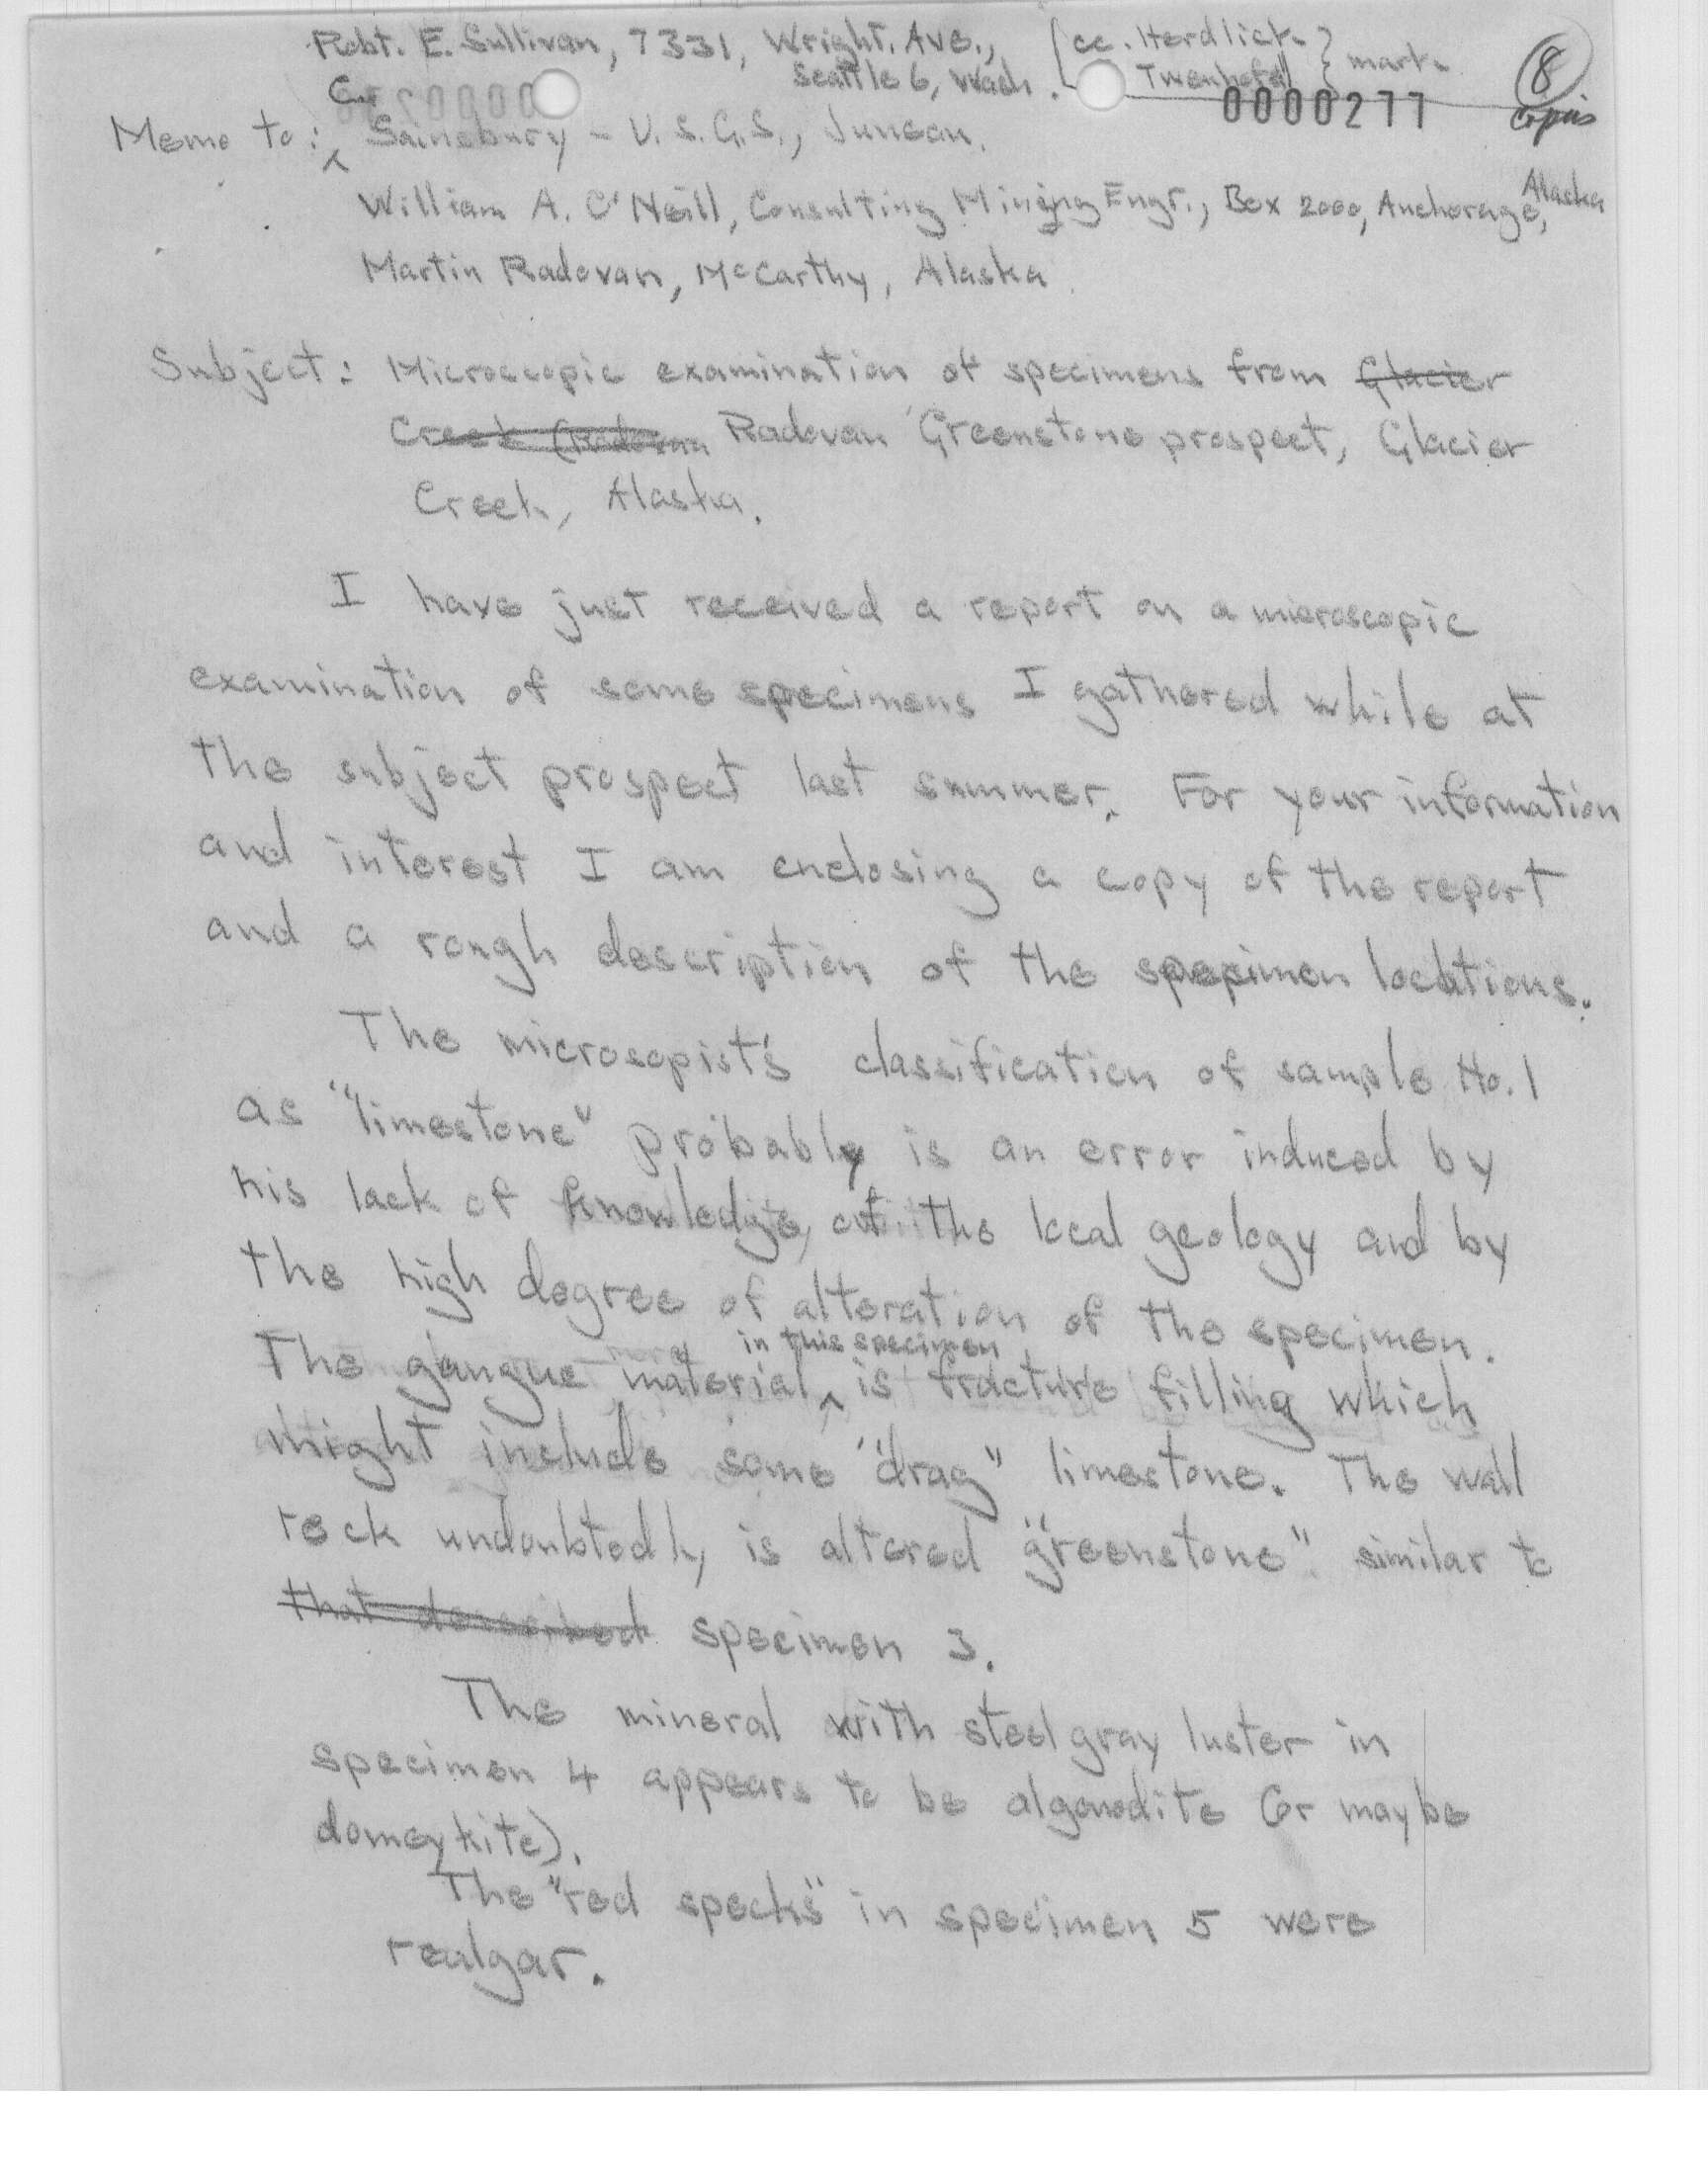 Robt. E. Sullivan, 7331, Wright. Ave., cc. Herdlick
Seattle 6, Wash. Twenhofel mark
8 copies
0000277
Memo to: C. Sainsbury - U.S.G.S., Juneau.
William A. O'Neill, Consulting Mining Engr., Box 2000, Anchorage, Alaska
Martin Radovan, McCarthy, Alaska
Subject: Microscopic examination of specimens from Glacier
Creek (Radovan Radovan Greenstone prospect, Glacier
Creek, Alaska.
I have just received a report on a microscopic
examination of some specimens I gathered while at
the subject prospect last summer. For your information
and interest I am enclosing a copy of the report
and a rough description of the specimen locations.
The microsopist's classification of sample No. 1
as "limestone" probably is an error induced by
his lack of knowledge, of the local geology and by
the high degree of alteration of the specimen.
The gangue material in this specimen is fracture filling which
might include some "drag" limestone. The wall
rock undoubtedly is altered "greenstone" similar to
that described specimen 3.
The mineral with steel gray luster in
specimen 4 appears to be algonodite (or maybe
domeykite).
The "red specks" in specimen 5 were
realgar.